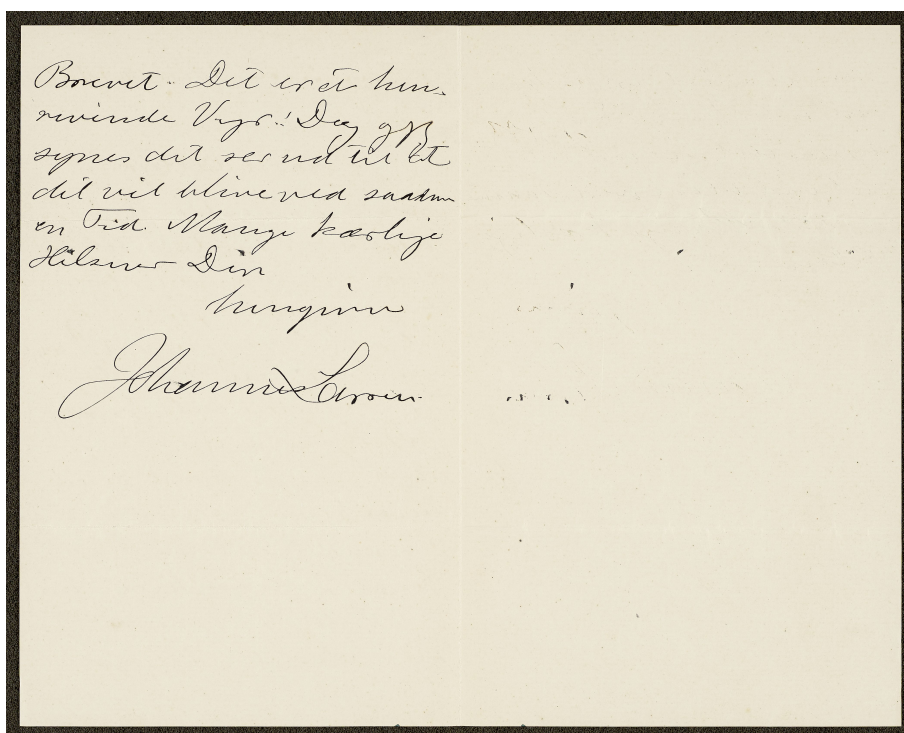 Brevet. Det er et hen-
rivende Vejr! Dag og
synes det ser ud til at
det vil blive ved saadan
en Tid. Mange kærlige
Hilsner Din
hengivne
Johannes Larsen.